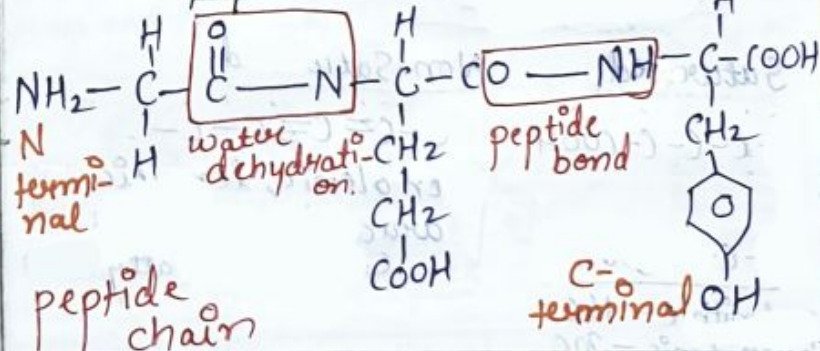 H
O
H
H
NH₂—C—C—N—C—CO—NH—C—COOH
N
termi-
nal
H
water
dehydrati-
on.
CH₂
CH₂
COOH
peptide
bond
CH₂
OH
C-
terminal
peptide
chain